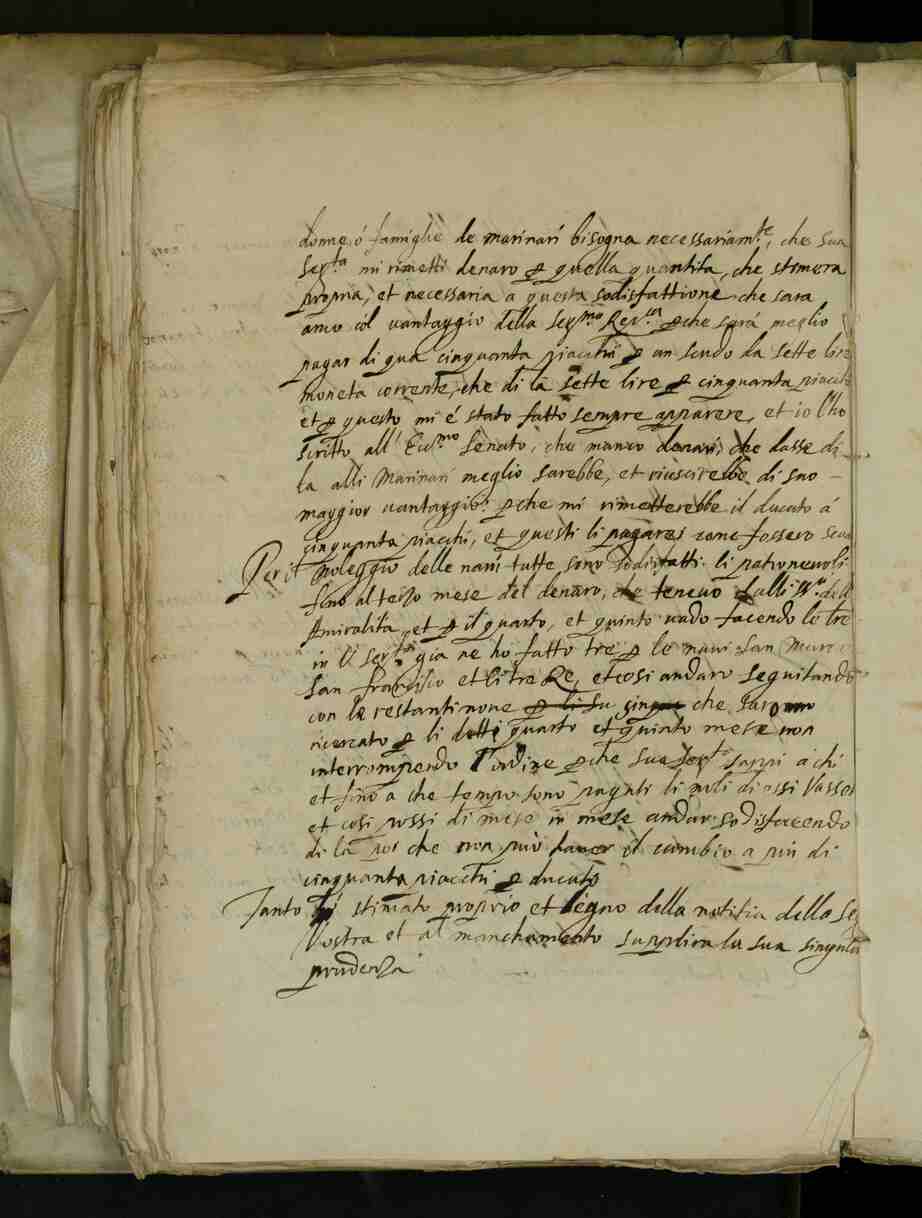 donne, ó famiglie de marinari bisogna necessariam.te, che sua
Ser.ta mi rimetti denaro p quella quantita, che stimera
propria, et necessaria a questa sodisfattione che sara
anco col vantaggio della Ser.ma Rep.ca pche sará meglio
pagar di qua cinquanta piacchi p un scudo da sette lire
moneta corrente, che di la sette lire p cinquanta piacchi
et p questo mi é stato fatto sempre apparere, et io l'ho
scritto all' Ecc.mo Senato, che manco denari, che dasse di
la alli Marinari meglio sarebbe, et riuscirebbe di suo
maggior vantaggio: pche mi rimetterebbe il ducato á
cinquanta piacchi, et questi li pagarei come fossero scudi
Per il noleggio delle navi tutte sono sodisfatti li patronevoli
fino al terzo mese del denaro, che tenevo dalli SS.ri dell
Amiralità, et p il quarto, et quinto vado facendo le lre
in V. Ser.tà già ne ho fatto tre p le navi San Marco
San francisco et li tre Re, et cosi andaro seguitando
con le restanti nove che saronno
ricercato p li detti quarto et quinto mese non
interrompendo l'ordine pche sua Ser.tà sappi á chi
et fino a che tempo sono pagati li noli di essi Vasse
et cosi possi di mese in mese andar sodisfacendo
di là poi che non può haver il cambio a più di
cinquanta piacchi p ducato
Tanto hó stimato proprio et degno della notitia della Se
Vostra et al manchamento supplira la sua singular
prudenza